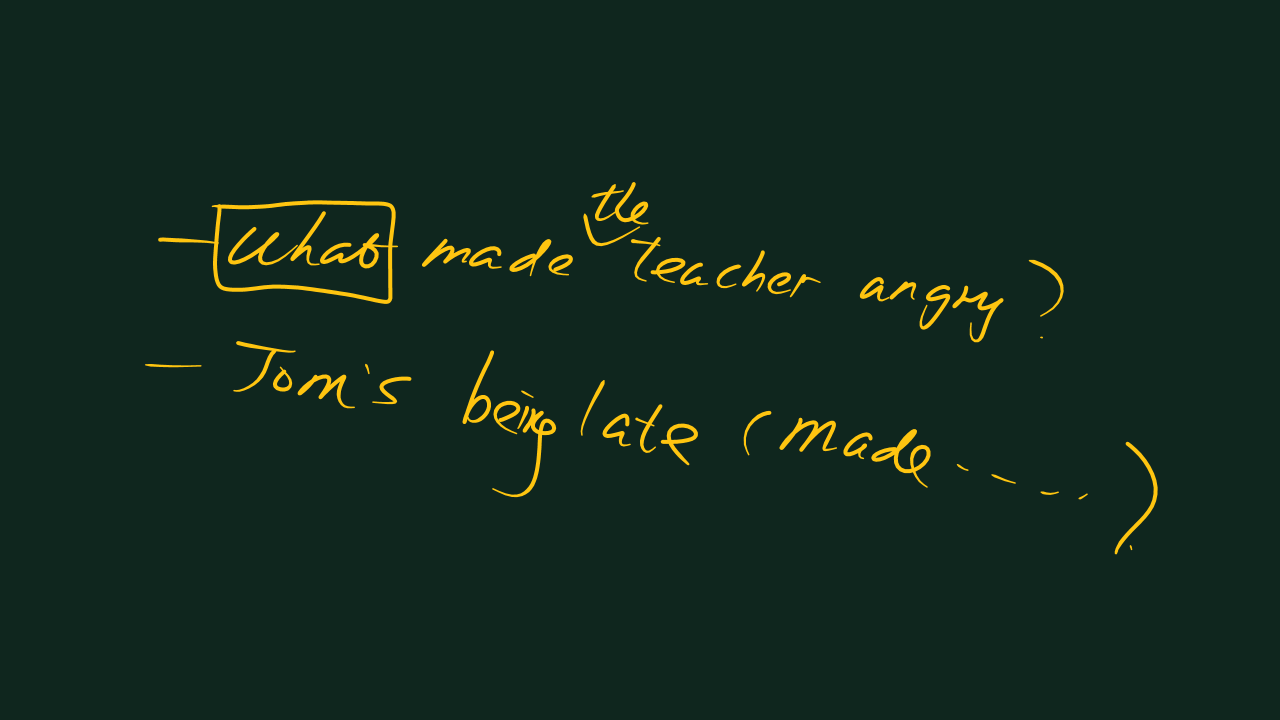 — What made the teacher angry?
— Tom's being late (made ----).